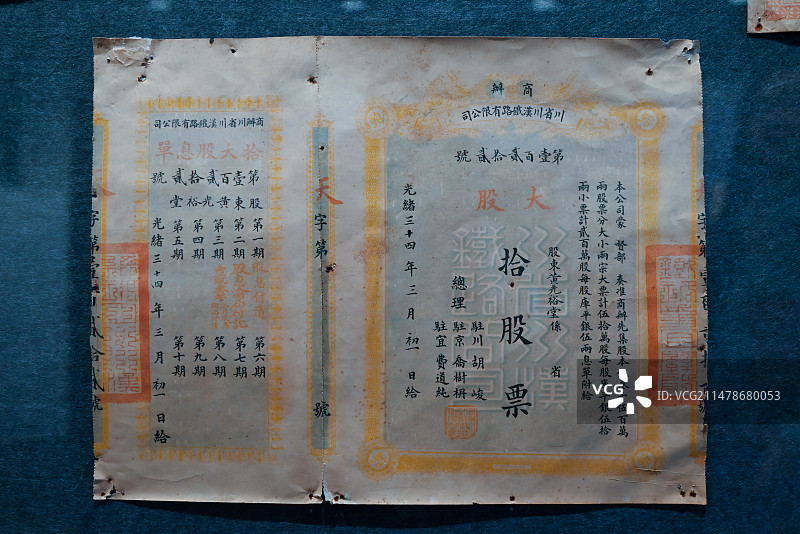 商辦
川省川漢鐵路有限公司
第壹百貳拾貳號
大股
本公司蒙 督部 奏准商辦先集股本
兩股票分大小兩宗大票計伍拾萬股每股
兩小票計貳百萬股每股庫平銀伍兩息單附給
股東黃光裕堂係 省
拾股票
總理
駐川胡峻
駐京喬樹枏
駐宜費道純
光緒三十四年三月初一日給
天字第 號
商辦川省川漢鐵路有限公司
拾大股息單
第壹百貳拾貳號
股東黃光裕堂
第一期 第六期
第二期 第七期
第三期 第八期
第四期 第九期
第五期 第十期
光緒三十四年三月初一日給
VCG
VCG.COM
ID:VCG211478680053